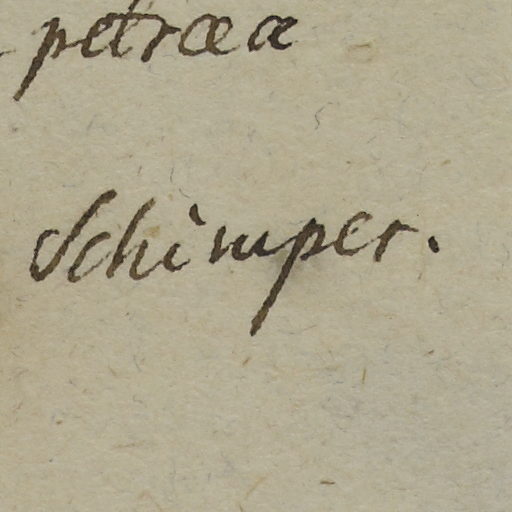 petræa
Schimper.